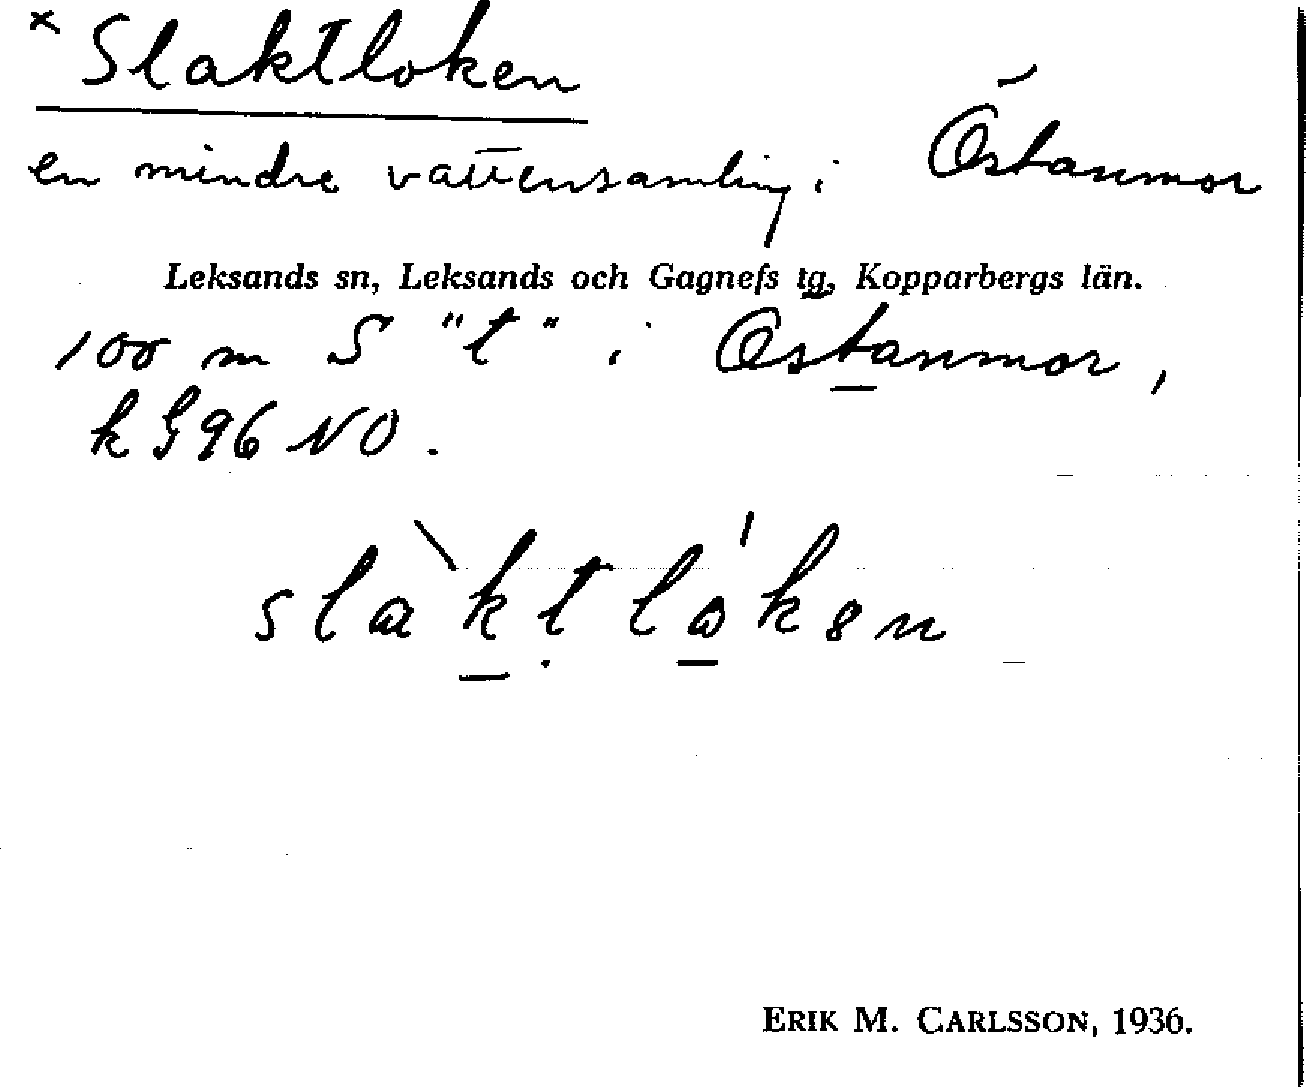 × Slaktloken
en mindre vattensamling i Östanmor
Leksands sn, Leksands och Gagnefs tg, Kopparbergs län.
100 m S "t" i Östanmor,
k G 96 NO.
slaktloken
ERIK M. CARLSSON, 1936.